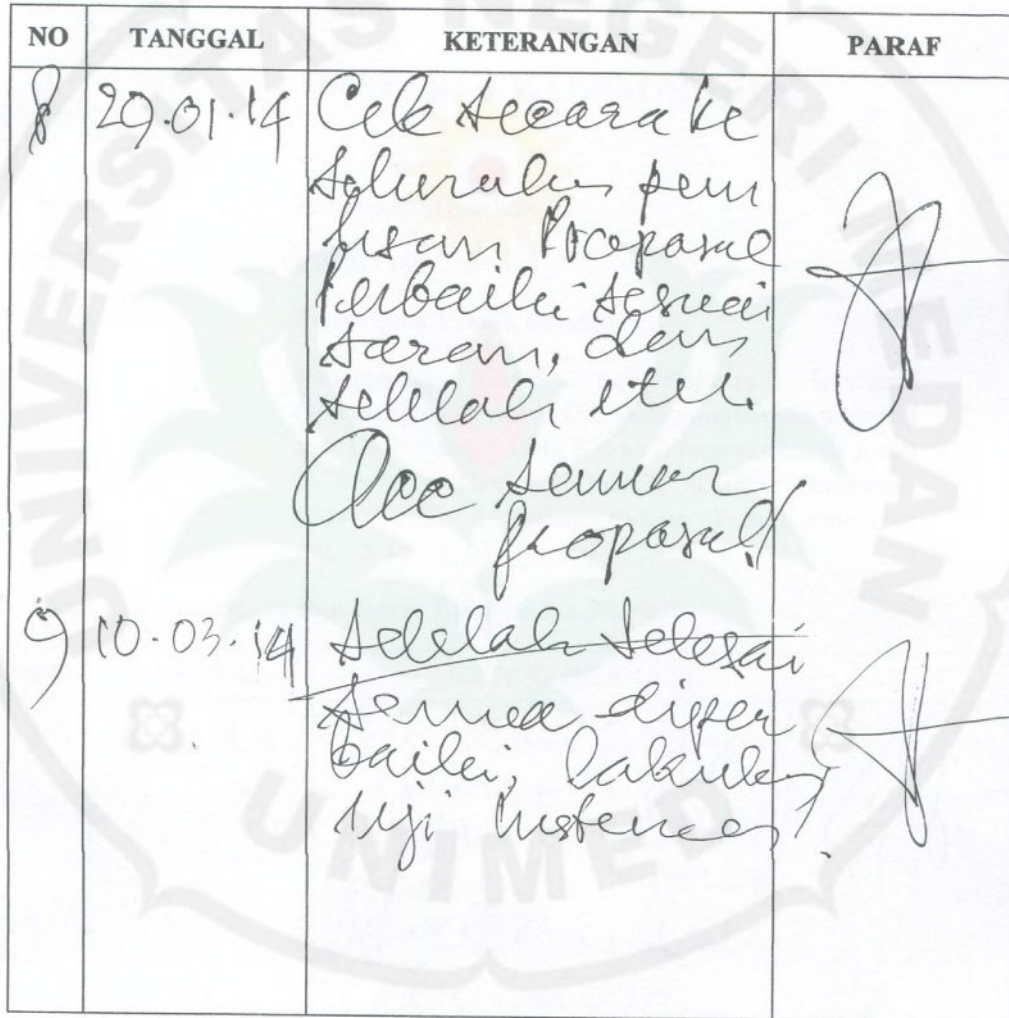 UNIVERSITAS NEGERI MEDAN
UNIMED
NO TANGGAL KETERANGAN PARAF
8 29.01.14 Cek secara ke
seluruhan penu
lisan Proposal
Perbaiki sesuai
saran, dan
setelah itu.
Acc seminar
proposal!
9 10.03.14 setelah selesai
semua diper
baiki, lakukan
uji instrumen!